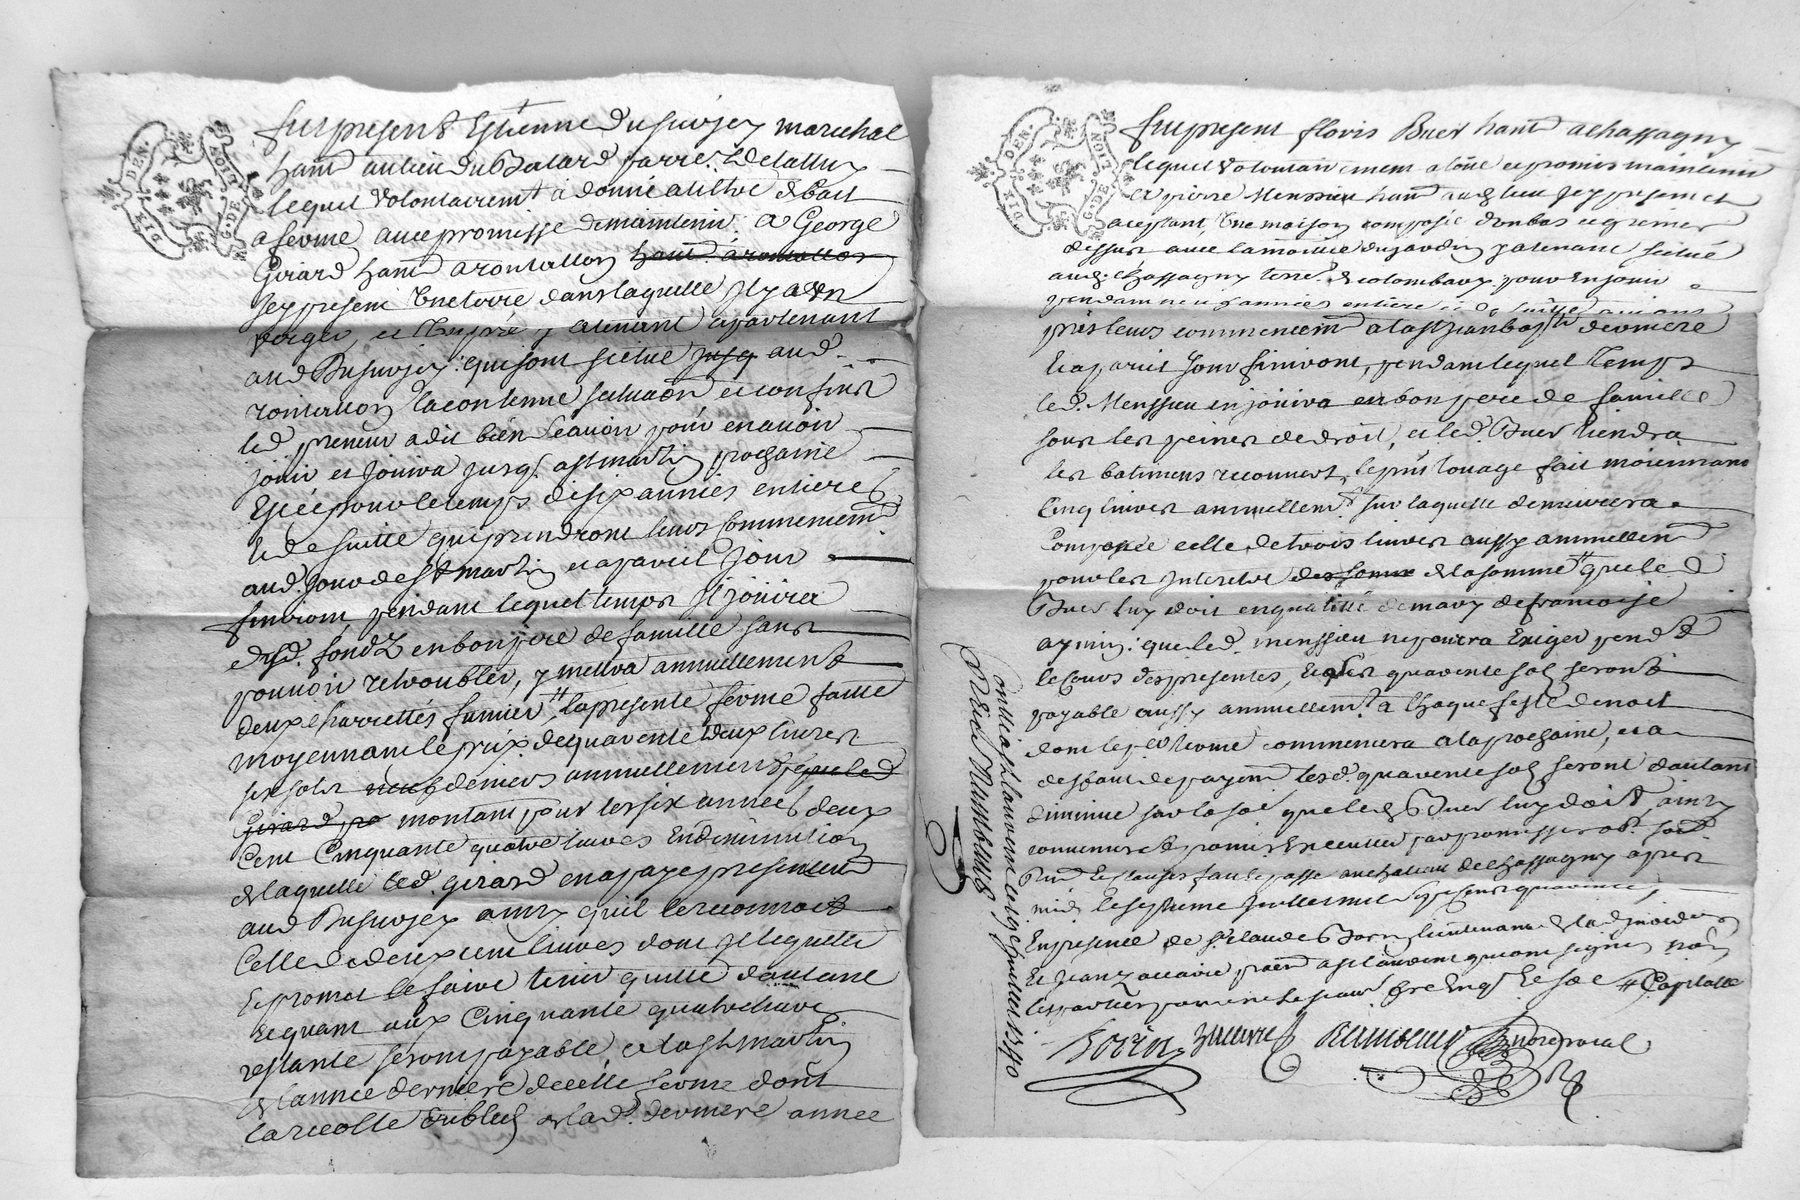 DIX DEN.
G. DE LION
fut present Estienne Dusurjey marechal
hant au lieu du Batard parre.
lequel volontairemt a donné a tiltre de bail
a ferme avec promisse de maintenir a George
Girard hant a rontallon hant a rontallon
icy present une terre dans laquelle il y a un
verger, et un pré y atenant apartenant
aud Dusurjey qui sont scitué jusq aud.
rontallon la contenue scituaon et confins
led. preneur a dit bien scavoir pour en avoir
jouir et jouira jusq. a st martin prochaine
et ce pour le temps de six années entieres
et de suitte qui prendront leurs commencemt
aud. jour de st martin et a pareil jour
finiront pendant lequel temps il jouira
desd. fondz en bon pere de famille sans
pouvoir retroubler, y mettra annuellement
deux charrettés fumier, la presente ferme faitte
moyennant le prix de quarente deux livres
six sols neuf deniers annuellement que led
Girard pr montant pour les six années deux
cent cinquante quatre livres en diminution
de laquelle led. girard en a payé presentemt
aud Dusurjey ainsy quil le reconnoit
celle de deux cent livres dont il le quitte
et promet le faire tenir quitte d'autant
et quant aux cinquante quatre livres
restante seront payable a la st martin
de l'année derniere de cette ferme dont
la recolte du bled de lad. derniere année
DIX DEN.
G. DE LION
fut present floris Buer hant a chassagny
lequel volontairement a loué et promis maintenir
a pierre Menssieu hant aud lieu icy present et
aceptant, une maison composée d'un bas et grenier
dessus avec la moitié du jardin y atenant scitué
aud. chassagny terre de colombaux pour en jouir
pendant neuf années entiere et de suitte
pris leurs commencemt a la st jean bapte derniere
et a pareil jour finiront, pendant lequel temps
led. Menssieu en jouira en bon pere de famille
sous les peines de droit, et led. Buer tiendra
les batimens recouvert, le pnt louage fait moiennant
cinq livres annuellemt sur laquelle demeurera
compensée celle de trois livres aussy annuellemt
pour les interetz des somme de la somme que led
Buer luy doit en qualité de mary de francoise
aymin: que led. menssieu ne pourra exiger pendt
le cours des presentes, et les quarente sols seront
payable aussy annuellemt a chaque feste de noel
dont le pr terme commencera a la prochaine, et a
deffaut de payemt lesd. quarente sols seront d'autant
diminué sur la soe que led Buer luy doit, ainsy
convenu et promis executer par promisse ob. soub.
Rend et clauses fait et passé au chateau de chassagny apres
midy le septieme juillet mil sept cent quarente,
En presence de Sr claude Borin lieutenant de lad juridion
et Jean Zacarie pnt a st laurent qui ont signés non
les parties pour ne le scavoir de ce Enqs et soe # Capitalle
Borin Zacarie Reimbaud
Contlé a st laurent le 19e juillet 1740